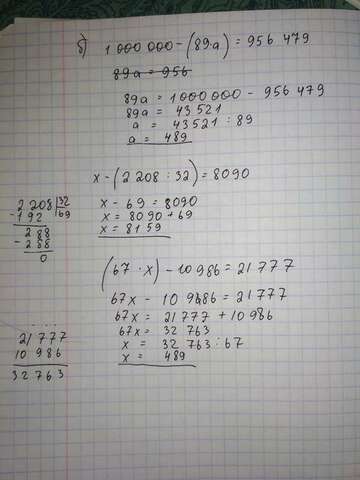 б) 1 000 000 - (89а) = 956 479
89а = 956
89а = 1 000 000 - 956 479
89а = 43 521
а = 43521 : 89
а = 489
x - (2 208 : 32) = 8090
x - 69 = 8090
x = 8090 + 69
x = 8159
2 208 | 32
- 192 69
288
- 288
0
(67 · x) - 10 986 = 21 777
67x - 10 986 = 21777
67x = 21777 + 10986
67x = 32 763
x = 32 763 : 67
x = 489
21 777
10 986
32 763